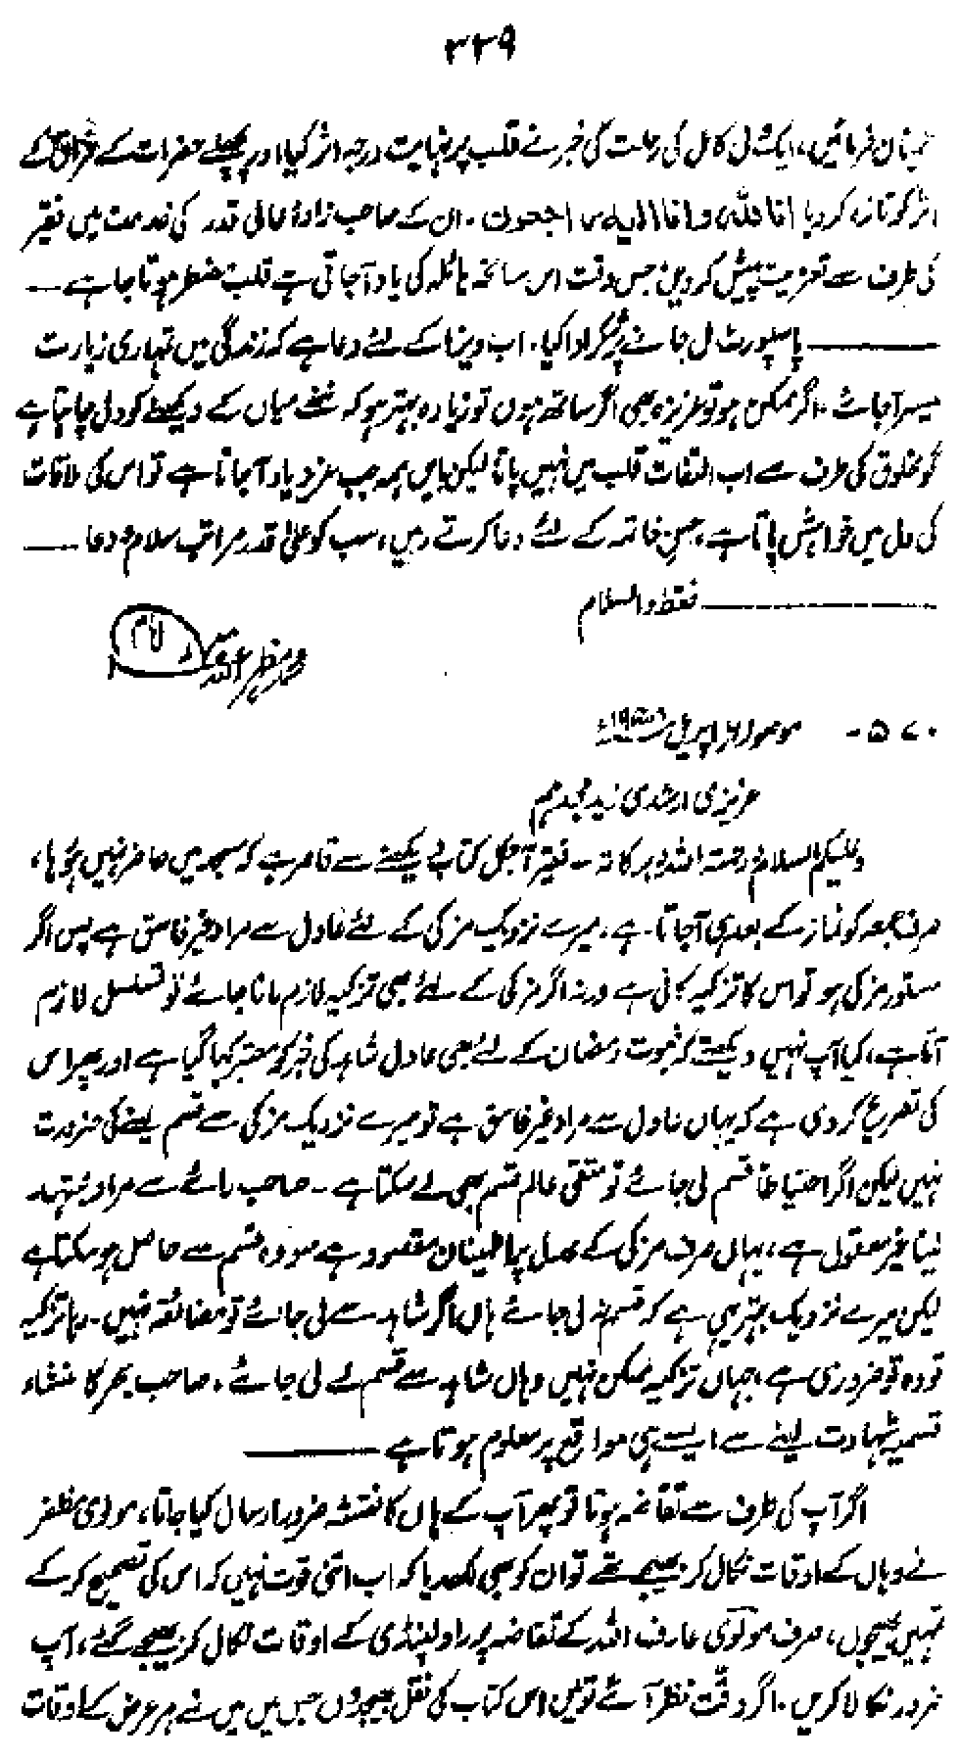 ۳۲۹
اطمینان فرمائیں، ایک شیخ کامل کی رحلت کی خبر نے قلب پر نہایت درجہ اثر کیا اور پچھلے حضرات کے فراق کے
اثر کو تازہ کر دیا انا للہ وانا الیہ راجعون۔ ان کے صاحب زادۂ عالی قدر کی خدمت میں فقیر
کی طرف سے تعزیت پیش کر دیں جس وقت اس سانحۂ ہائلہ کی یاد آجاتی ہے قلب مضطر ہوتا جاہے —
——— پاسپورٹ مل جانے پر شکر ادا کیا۔ اب ویزا کے لئے دعا ہے کہ زندگی میں تمہاری زیارت
میسر آجائے۔ اگر ممکن ہو تو عزیزہ بھی اگر ساتھ ہوں تو زیادہ بہتر ہو کہ ننھے میاں کے دیکھنے کو دل چاہتا ہے
گو مخلوق کی طرف سے اب التفات قلب میں نہیں پاتا لیکن بایں ہمہ جب عزیز یاد آجاتا ہے تو اس کی ملاقات
کی دل میں خواہش پاتا ہے، حسنِ خاتمہ کے لئے دعا کرتے رہیں، سب کو علیٰ قدر مراتب سلام و دعا —
——— فقط والسلام
محمد مظہر اللہ
۵۷۰ - موصولہ ۱۶ اپریل ۱۹۵۶ء
عزیزی ارشدی زید مجدہم
وعلیکم السلام ورحمۃ اللہ وبرکاتہ — فقیر آجکل کتاب دیکھنے سے قاصر ہے کہ مسجد میں حاضر نہیں ہوتا،
صرف جمعہ کو نماز کے بعد ہی آجاتا ہے، میرے نزدیک مزکی کے لئے عادل سے مراد غیر فاسق ہے پس اگر
مستور مزکی ہو تو اس کا تزکیہ کافی ہے ورنہ اگر مزکی کے لئے بھی تزکیہ لازم مانا جائے تو تسلسل لازم
آتا ہے، کیا آپ نہیں دیکھتے کہ ثبوت رمضان کے لئے بھی عادل شاہد کی خبر کو معتبر کہا گیا ہے اور پھر اس
کی تصریح کر دی ہے کہ یہاں عادل سے مراد غیر فاسق ہے تو میرے نزدیک مزکی سے قسم لینے کی ضرورت
نہیں لیکن اگر احتیاطاً قسم لی جائے تو متقی عالم قسم بھی لے سکتا ہے۔ صاحب رائے سے مراد مجتہد
لینا غیر معقول ہے، یہاں صرف مزکی کے عدل پر اطمینان مقصود ہے سو وہ قسم سے حاصل ہو سکتا ہے
لیکن میرے نزدیک بہتر یہی ہے کہ قسم نہ لی جائے ہاں اگر شاہد سے لی جائے تو مضائقہ نہیں۔ رہا تزکیہ
تو وہ تو ضروری ہے، جہاں تزکیہ ممکن نہیں وہاں شاہد سے قسم لے لی جائے۔ صاحب بحر کا منشاء
قسمیہ شہادت لینے سے ایسے ہی مواقع پر معلوم ہوتا ہے ———
اگر آپ کی طرف سے تقاضہ ہوتا تو پھر آپ کے ہاں کا نقشہ ضرور ارسال کیا جاتا، مولوی مظفر
نے وہاں کے اوقات نکال کر بھیجے تھے تو ان کو بھی لکھ دیا کہ اب اتنی قوت نہیں کہ اس کی تصحیح کر کے
تمہیں بھیجوں، صرف مولوی عارف اللہ کے تقاضہ پر راولپنڈی کے اوقات نکال کر بھیجے گئے، آپ
ضرور نکالا کریں۔ اگر دقّت نظر آئے تو میں اس کتاب کی نقل بھیجدوں جس میں میں نے ہر عرض کے اوقات